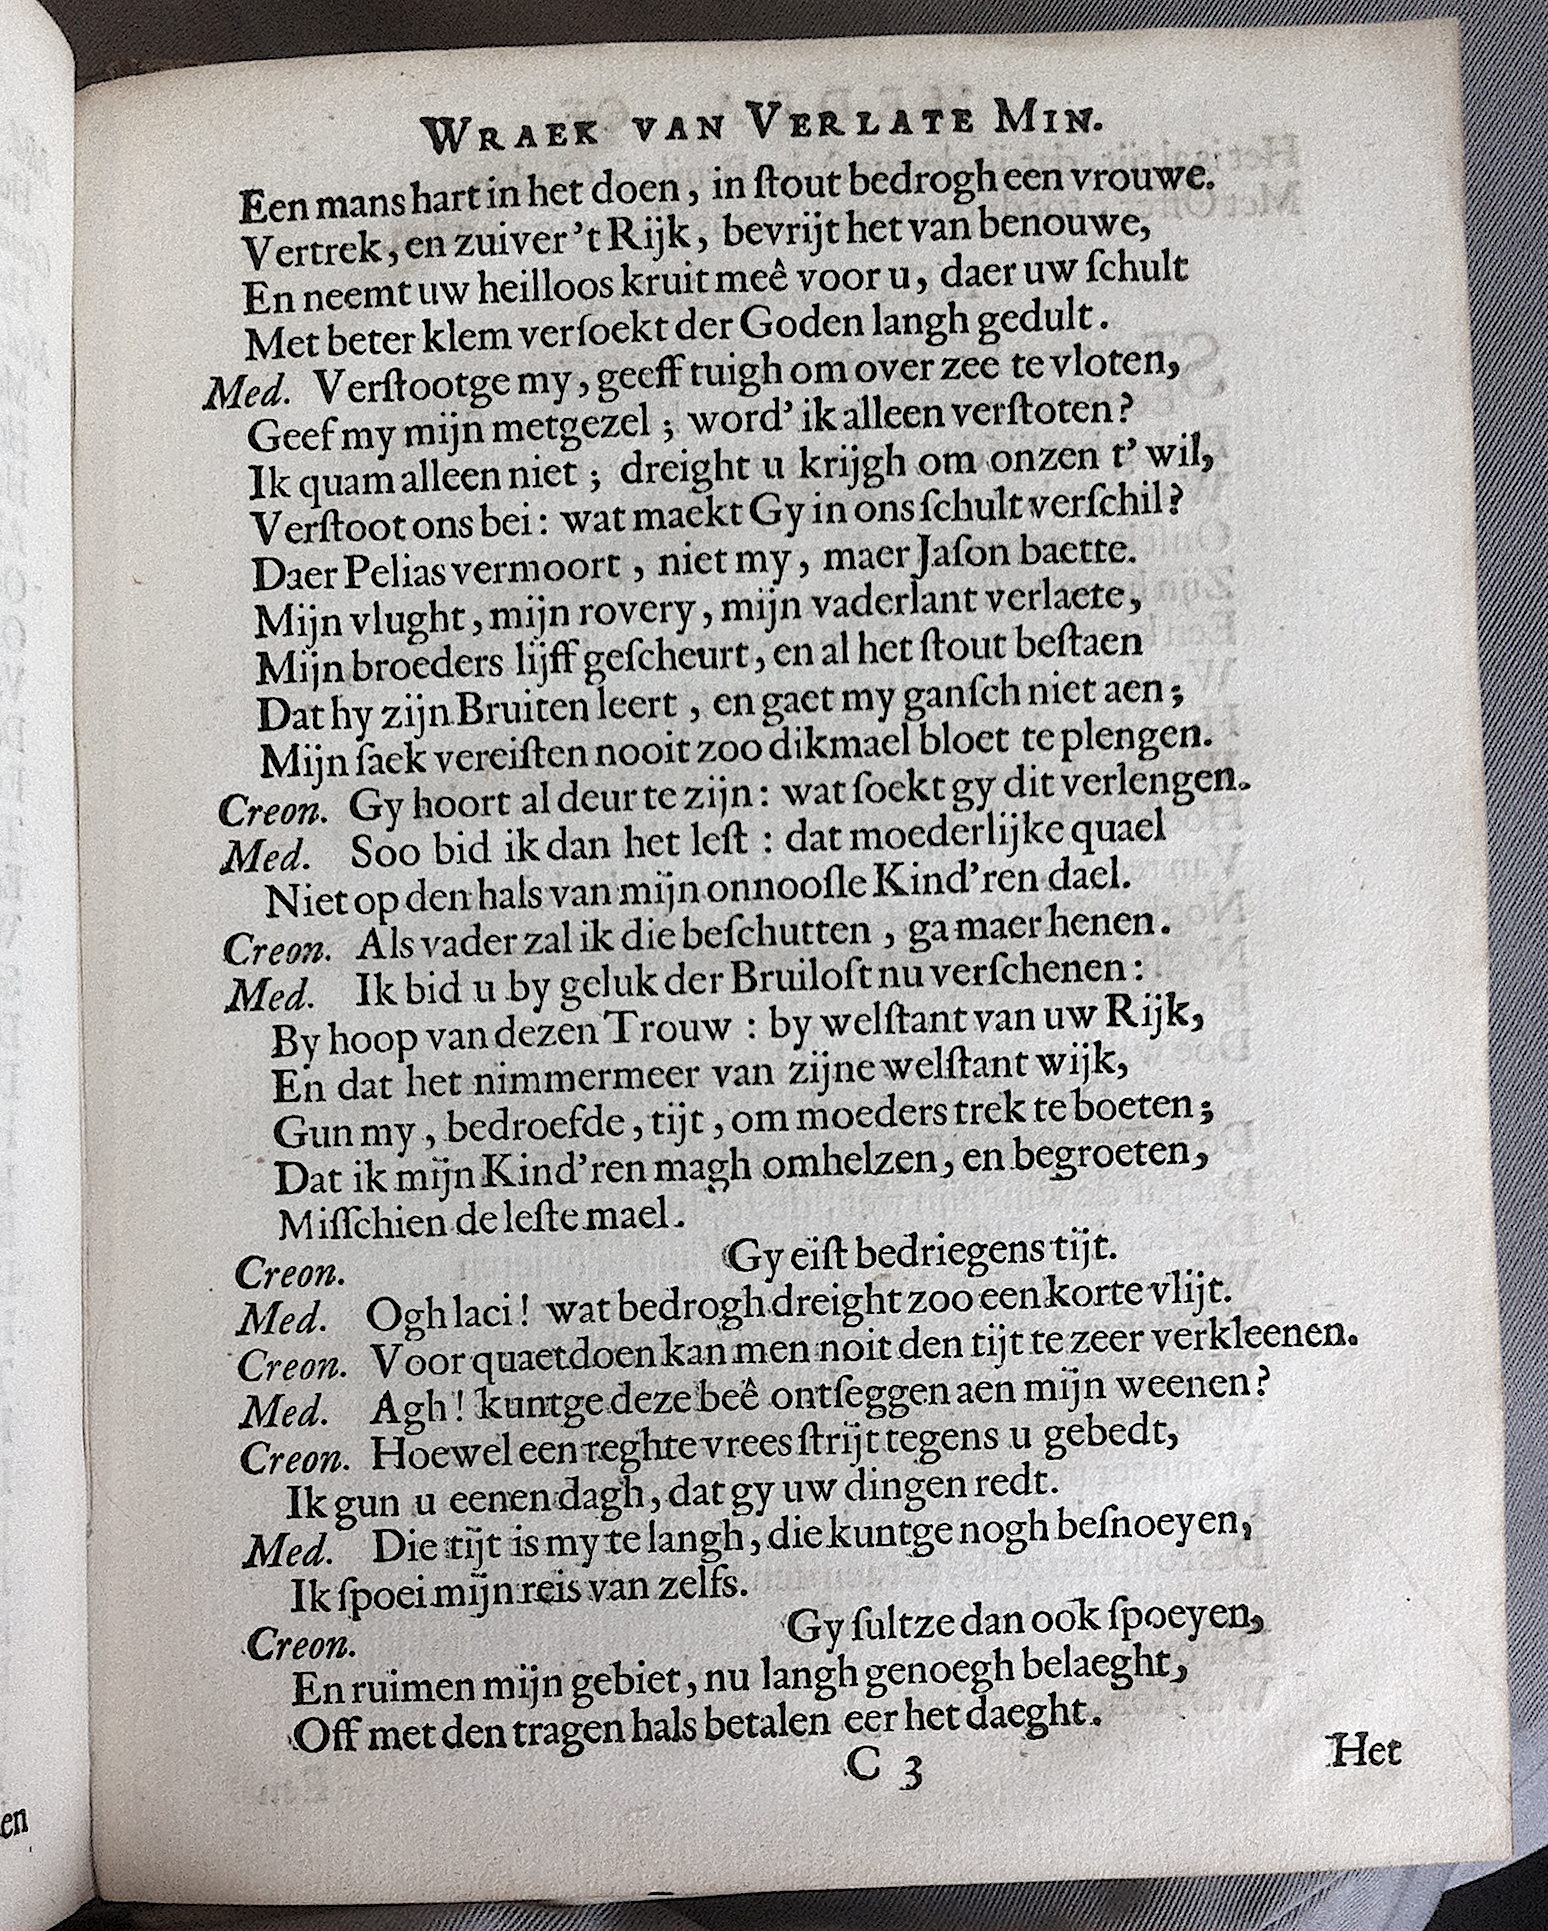 WRAEK VAN VERLATE MIN.
Een mans hart in het doen, in ſtout bedrogh een vrouwe.
Vertrek, en zuiver 't Rijk, bevrijt het van benouwe,
En neemt uw heilloos kruit meê voor u, daer uw ſchult
Met beter klem verſoekt der Goden langh gedult.
Med. Verſtootge my, geeff tuigh om over zee te vloten,
Geef my mijn metgezel; word' ik alleen verſtoten?
Ik quam alleen niet; dreight u krijgh om onzen t' wil,
Verſtoot ons bei: wat maekt Gy in ons ſchult verſchil?
Daer Pelias vermoort, niet my, maer Jaſon baette.
Mijn vlught, mijn rovery, mijn vaderlant verlaete,
Mijn broeders lijff geſcheurt, en al het ſtout beſtaen
Dat hy zijn Bruiten leert, en gaet my ganſch niet aen;
Mijn ſaek vereiſten nooit zoo dikmael bloet te plengen.
Creon. Gy hoort al deur te zijn: wat ſoekt gy dit verlengen.
Med. Soo bid ik dan het leſt: dat moederlijke quael
Niet op den hals van mijn onnooſle Kind'ren dael.
Creon. Als vader zal ik die beſchutten, ga maer henen.
Med. Ik bid u by geluk der Bruiloft nu verſchenen:
By hoop van dezen Trouw: by welſtant van uw Rijk,
En dat het nimmermeer van zijne welſtant wijk,
Gun my, bedroefde, tijt, om moeders trek te boeten;
Dat ik mijn Kind'ren magh omhelzen, en begroeten,
Miſſchien de leſte mael.
Creon. Gy eiſt bedriegens tijt.
Med. Ogh laci! wat bedrogh dreight zoo een korte vlijt.
Creon. Voor quaet doen kan men noit den tijt te zeer verkleenen.
Med. Agh! kuntge deze beê ontſeggen aen mijn weenen?
Creon. Hoewel een reghte vrees ſtrijt tegens u gebedt,
Ik gun u eenen dagh, dat gy uw dingen redt.
Med. Die tijt is my te langh, die kuntge nogh beſnoeyen,
Ik ſpoei mijn reis van zelfs.
Creon. Gy ſultze dan ook ſpoeyen,
En ruimen mijn gebiet, nu langh genoegh belaeght,
Off met den tragen hals betalen eer het daeght.
C 3
Het
en